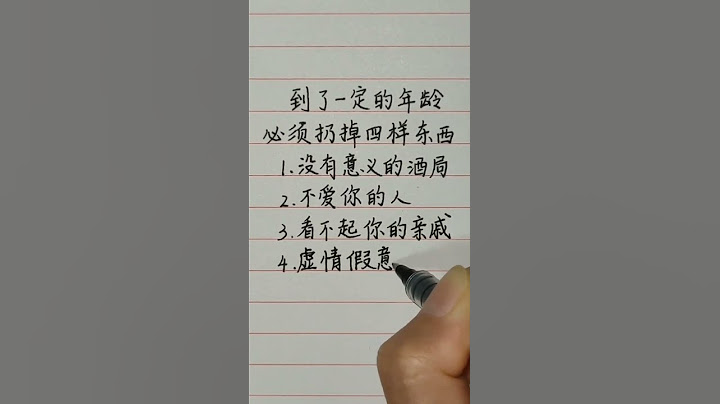 到了一定的年龄
必须扔掉四样东西
1.没有意义的酒局
2.不爱你的人
3.看不起你的亲戚
4.虚情假意